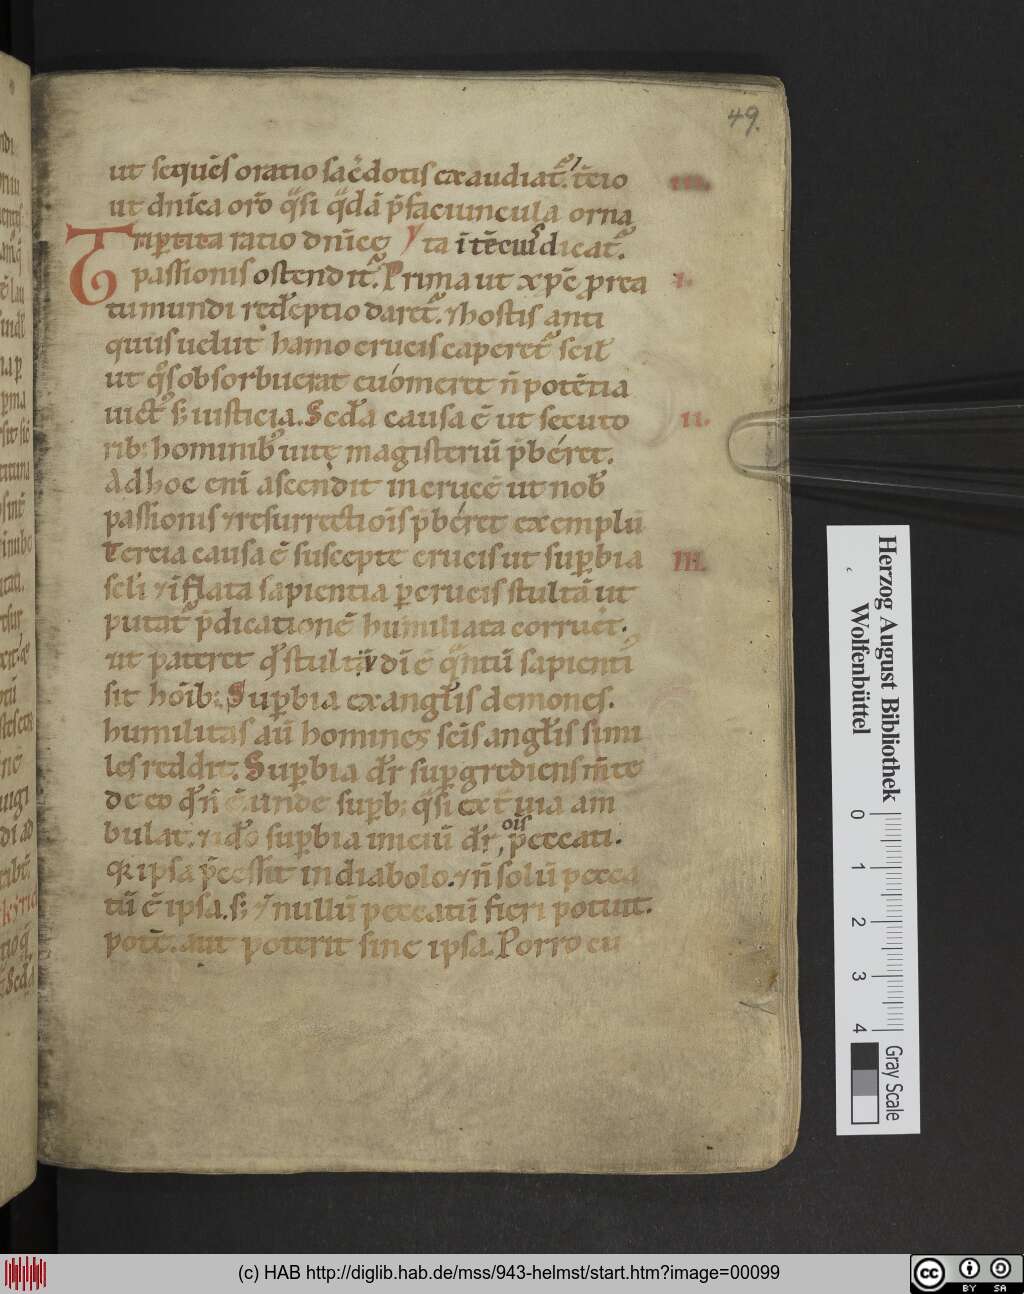 49.
ut sequēs oratio sac̄dotis exaudiat᷑. t̄cio
III.
ut dnīca orō q̈si q̈dā p̄faciuncula orna
Tripertita ratio dnīcę ta ī t̄ciū dicat᷑.
passionis ostendit᷑. Prima ut xp̄c prea
I.
tu mundi redēptio daret᷑. ⁊ hostis anti
quus uelut hamo crucis caperet᷑ scil̄
ut q̊s obsorbuerat euómeret ñ potētia
uict᷑ s; iusticia. Scd̄a causa ē ut secuto
II.
rib; hominib᷒ uitę magisteriū p̄béret.
Ad hoc enī ascendit in crucē ut nob̄
passionis ⁊ resurrectiōis p̄béret exemplū
Tercia causa ē suscepte crucis ut sup̱bia
III.
scl̄i ⁊ īflata sapientia ꝑ crucis stultā ut
putat᷑ p̄dicationē humiliata corruet.
ut pateret qđ stultū dī ē q̈ntū sapienti᷒
sit hōib; Suꝑbia ex angl̄is demones.
humilitas aū homines scīs angl̄is simi
les reddit. Suꝑbia dr̄ suꝑgrediens m̄te
de eo qđ ñ ē. unde suꝑb; q̈si ext̄ uia am
bulat. ⁊ iđo suꝑbia iniciū dr̄, peccati.
oīs
q̨ ipsa p̄cessit in diabolo. ⁊ ñ solū pecca
tū ē ipsa. s; ⁊ nullū peccatū fieri potuit.
potē. aut poterit sine ipsa. Porro cu
Herzog August Bibliothek
Wolfenbüttel
0 1 2 3 4
Gray Scale
(c) HAB http://diglib.hab.de/mss/943-helmst/start.htm?image=00099
cc BY SA